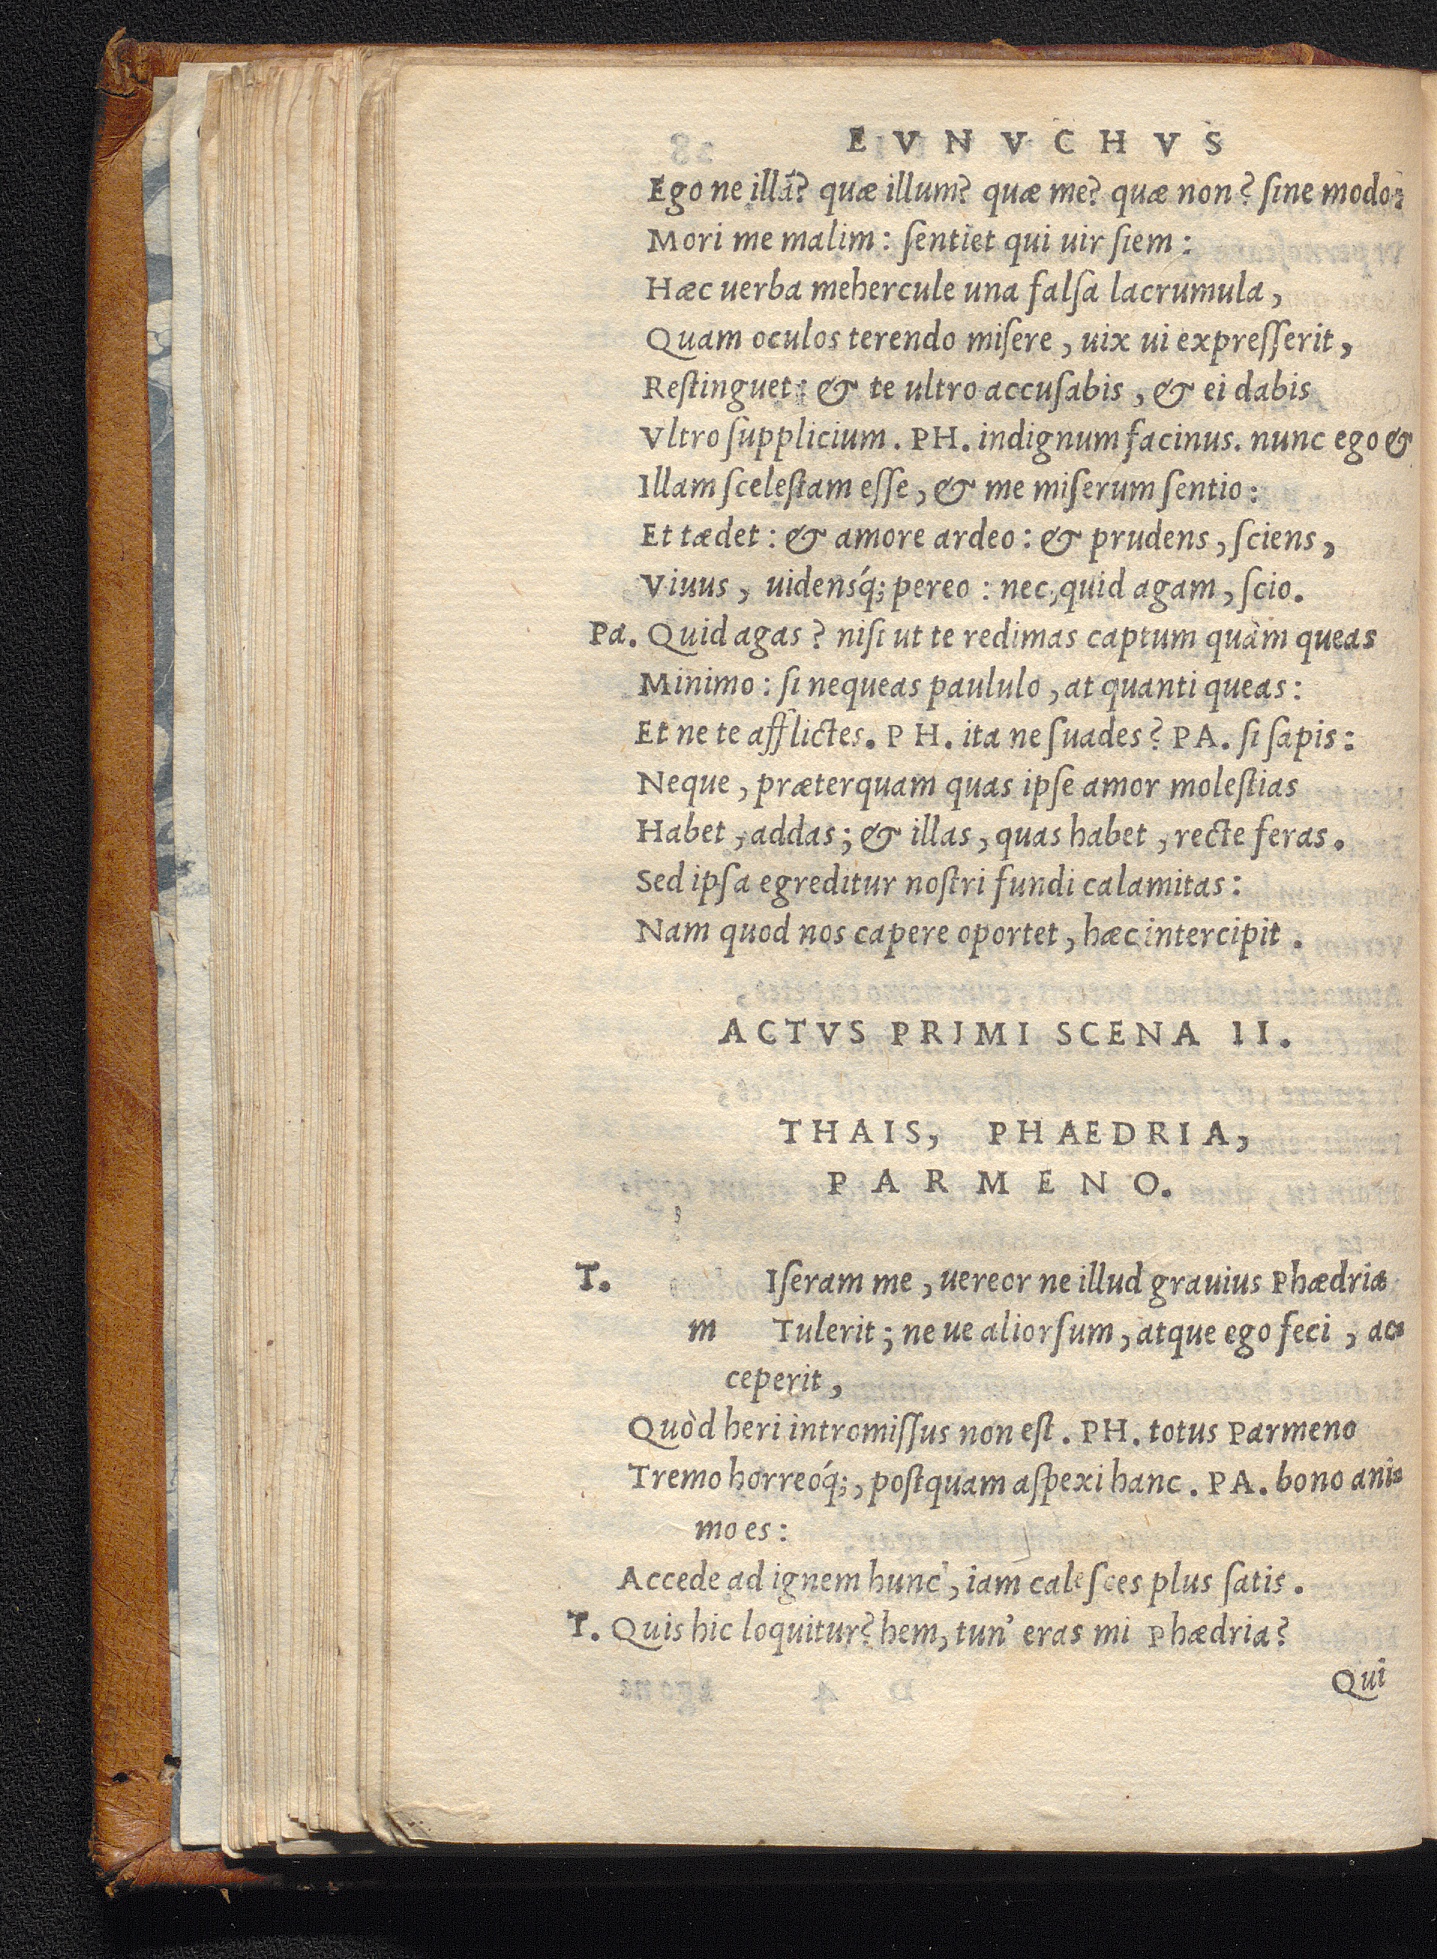 EVNVCHVS
Ego ne illã? quæ illum? quæ me? quæ non? ſine modo:
Mori me malim: ſentiet qui uir ſiem:
Hæc uerba mehercule una falſa lacrumula,
Quam oculos terendo miſere, uix ui expreſſerit,
Reſtinguet: & te ultro accuſabis, & ei dabis
Vltro ſupplicium. PH. indignum facinus. nunc ego &
Illam ſceleſtam eſſe, & me miſerum ſentio:
Et tædet: & amore ardeo: & prudens, ſciens,
Viuus, uidensq́; pereo: nec, quid agam, ſcio.
Pa. Quid agas? niſi ut te redimas captum quàm queas
Minimo: ſi nequeas paululo, at quanti queas:
Et ne te afflictes. PH. ita ne ſuades? PA. ſi ſapis:
Neque, præterquam quas ipſe amor moleſtias
Habet, addas; & illas, quas habet, recte feras.
Sed ipſa egreditur noſtri fundi calamitas:
Nam quod nos capere oportet, hæc intercipit.
ACTVS PRIMI SCENA II.
THAIS, PHAEDRIA,
PARMENO.
T. Iſeram me, uereor ne illud grauius Phædria
m Tulerit; ne ue aliorſum, atque ego feci, ac-
ceperit,
Quòd heri intromiſſus non eſt. PH. totus Parmeno
Tremo horreoq́;, poſtquam aſpexi hanc. PA. bono ani-
mo es:
Accede ad ignem hunc, iam caleſces plus ſatis.
T. Quis hic loquitur? hem, tun' eras mi Phædria?
Qui